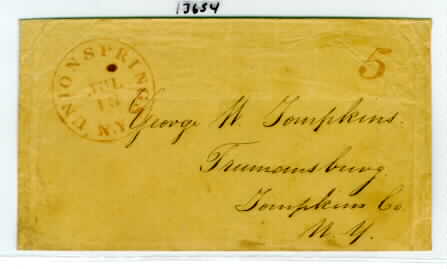 13654
UNION SPRINGS N.Y.
JUL
15
5
George W. Tompkins.
Trumansburg.
Tompkins Co.
N. Y.